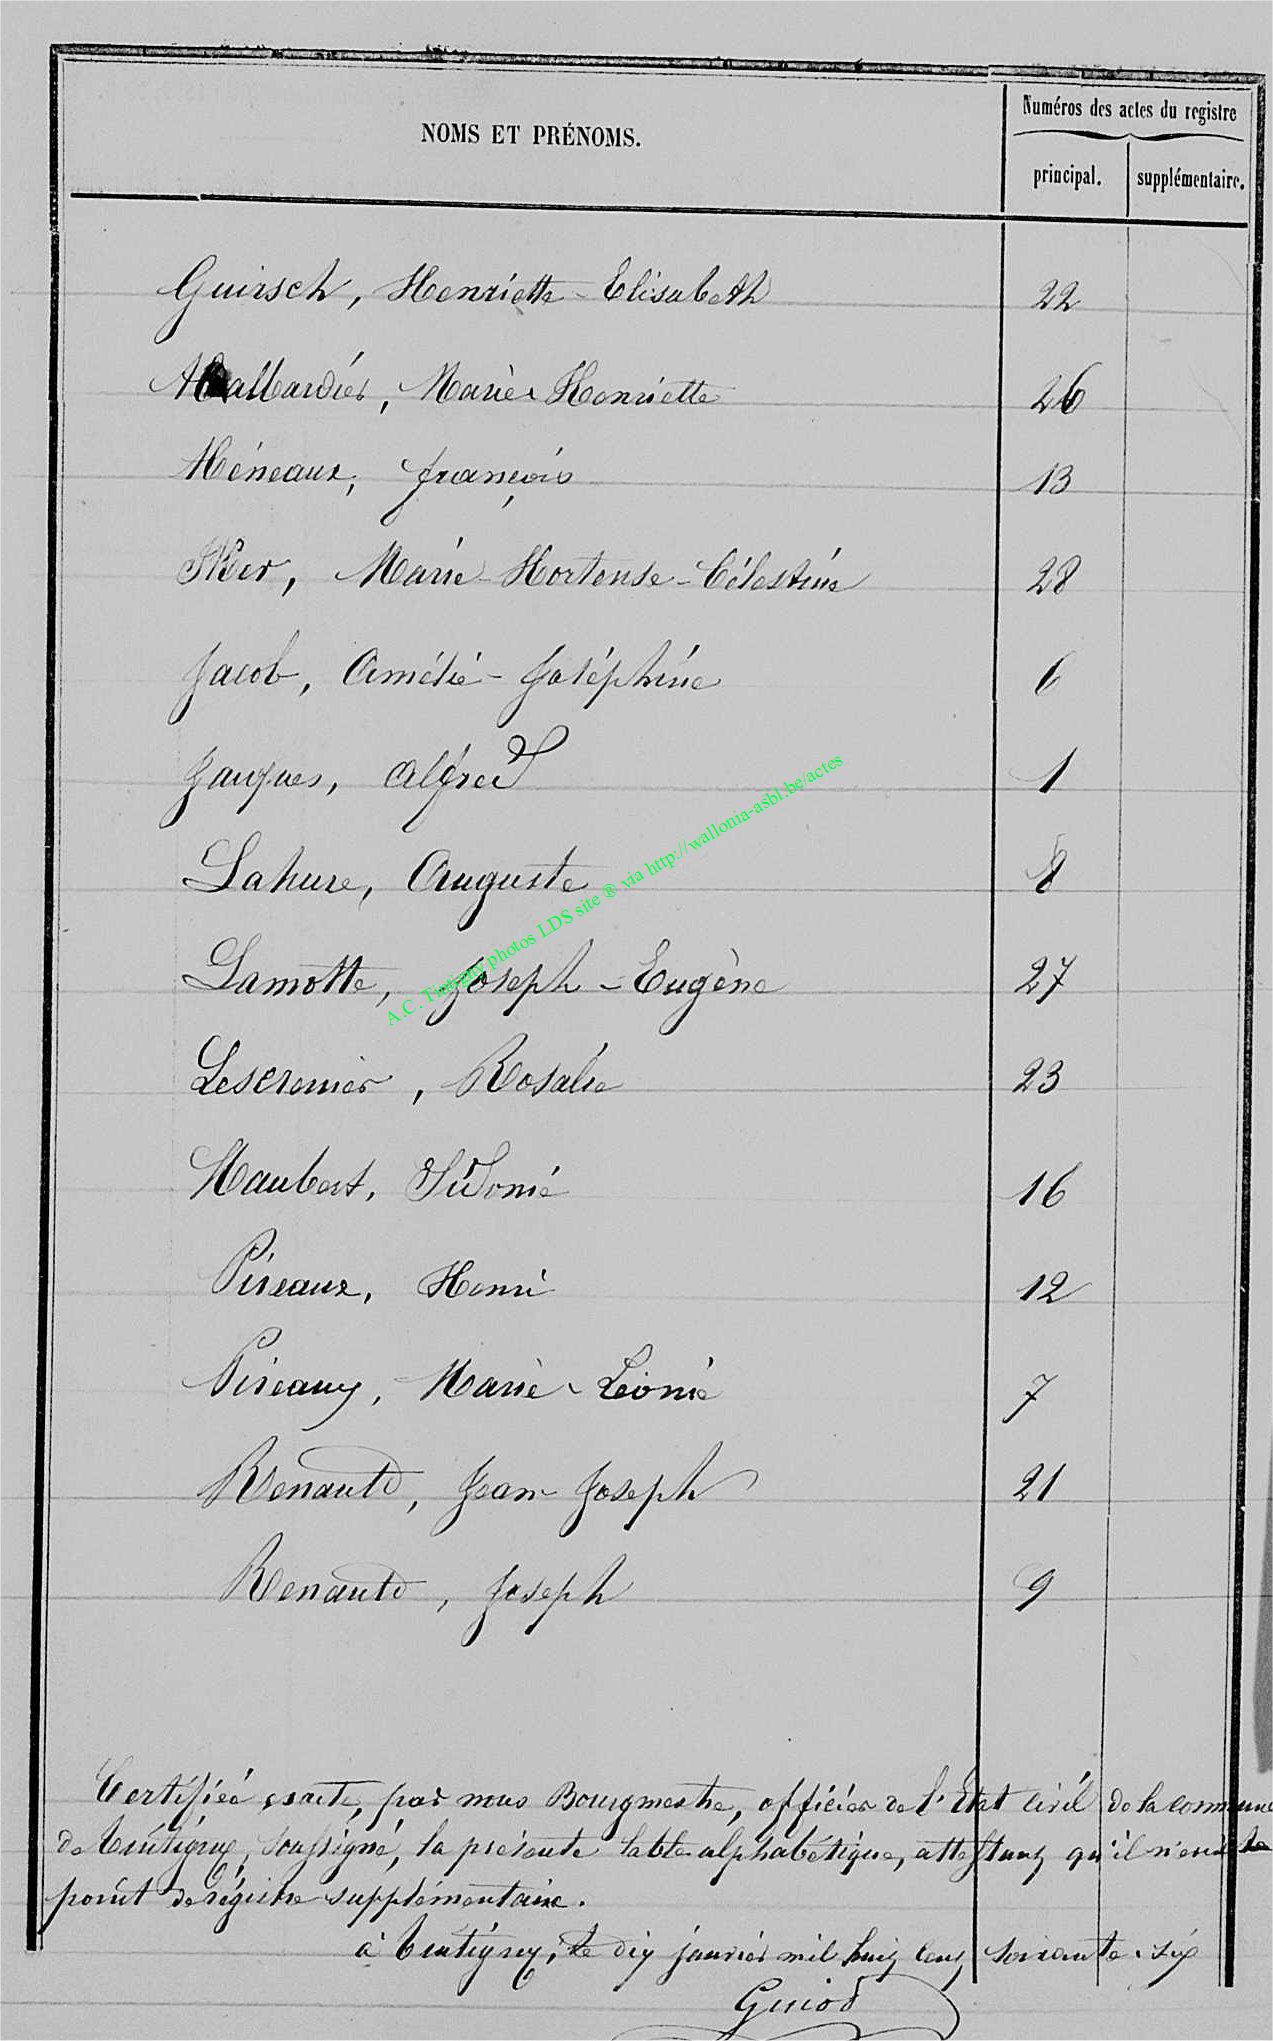 Numéros des actes du registre
NOMS ET PRÉNOMS.
principal. supplémentaire.
Guirsch, Henriette-Elisabeth 22
Hallardiés, Marie-Henriette 26
Héneaux, François 13
Iker, Marie-Hortense-Célestine 28
Jacob, Amélie-Joséphine 6
Jacques, Alfred 1
Lahure, Auguste 8
Lamotte, Joseph-Eugène 27
Lescrenier, Rosalie 23
Maubert, Sidonie 16
Pireaux, Henri 12
Pireaux, Marie-Léonie 7
Renauld, Jean-Joseph 21
Renauld, Joseph 9
A.C. Tintigny photos LDS site ® via http://wallonia-asbl.be/actes
Certifiée exacte, par nous Bourgmestre, officier de l'Etat civil de la commune
de Tintigny, soussigné, la présente table alphabétique, attestant qu'il n'existe
point de régistre supplémentaire.
à Tintigny, le dix janvier mil huit cent soixante-six
Guiod